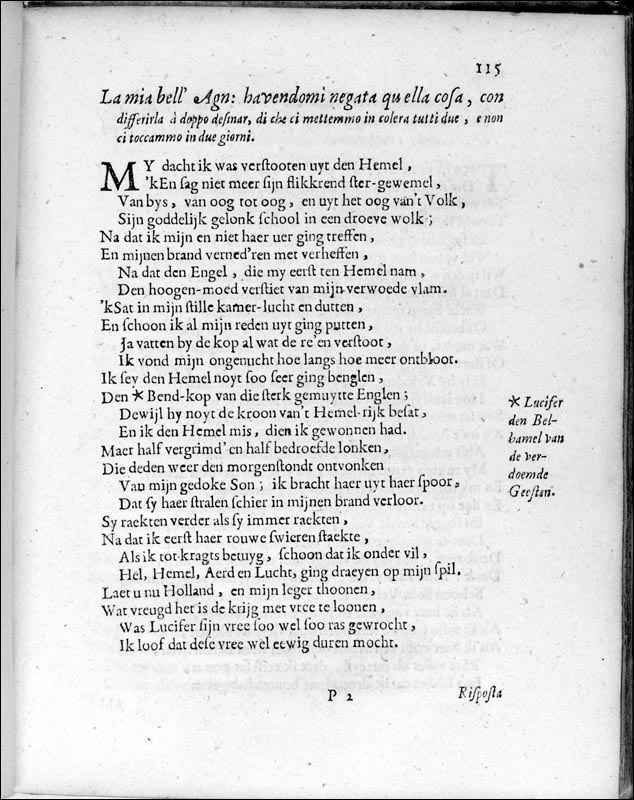 115
La mia bell' Agn: havendomi negata quella cosa, con
differirla à doppo desinar, di che ci mettemmo in colera tutti due, e non
ci toccammo in due giorni.
MY dacht ik was verstooten uyt den Hemel,
'kEn sag niet meer sijn flikkrend ster-gewemel,
Van bys, van oog tot oog, en uyt het oog van't Volk,
Sijn goddelijk gelonk school in een droeve wolk;
Na dat ik mijn en niet haer uer ging treffen,
En mijnen brand verned'ren met verheffen,
Na dat den Engel, die my eerst ten Hemel nam,
Den hoogen-moed verstiet van mijn verwoede vlam.
'kSat in mijn stille kamer-lucht en dutten,
En schoon ik al mijn reden uyt ging putten,
Ja vatten by de kop al wat de re'en verstoot,
Ik vond mijn ongenucht hoe langs hoe meer ontbloot.
Ik sey den Hemel noyt soo seer ging benglen,
Den * Bend-kop van die sterk gemuytte Englen;
Dewijl hy noyt de kroon van't Hemel-rijk besat,
En ik den Hemel mis, dien ik gewonnen had.
Maer half vergrimd' en half bedroefde lonken,
Die deden weer den morgenstondt ontvonken
Van mijn gedoke Son; ik bracht haer uyt haer spoor,
Dat sy haer stralen schier in mijnen brand verloor.
Sy raekten verder als sy immer raekten,
Na dat ik eerst haer rouwe swieren staekte,
Als ik tot kragts betuyg, schoon dat ik onder vil,
Hel, Hemel, Aerd en Lucht, ging draeyen op mijn spil.
Laet u nu Holland, en mijn leger thoonen,
Wat vreugd het is de krijg met vree te loonen,
Was Lucifer sijn vree soo wel soo ras gewrocht,
Ik loof dat dese vree wel eewig duren mocht.
* Lucifer
den Bel-
hamel van
de ver-
doemde
Geesten.
P 2
Risposta